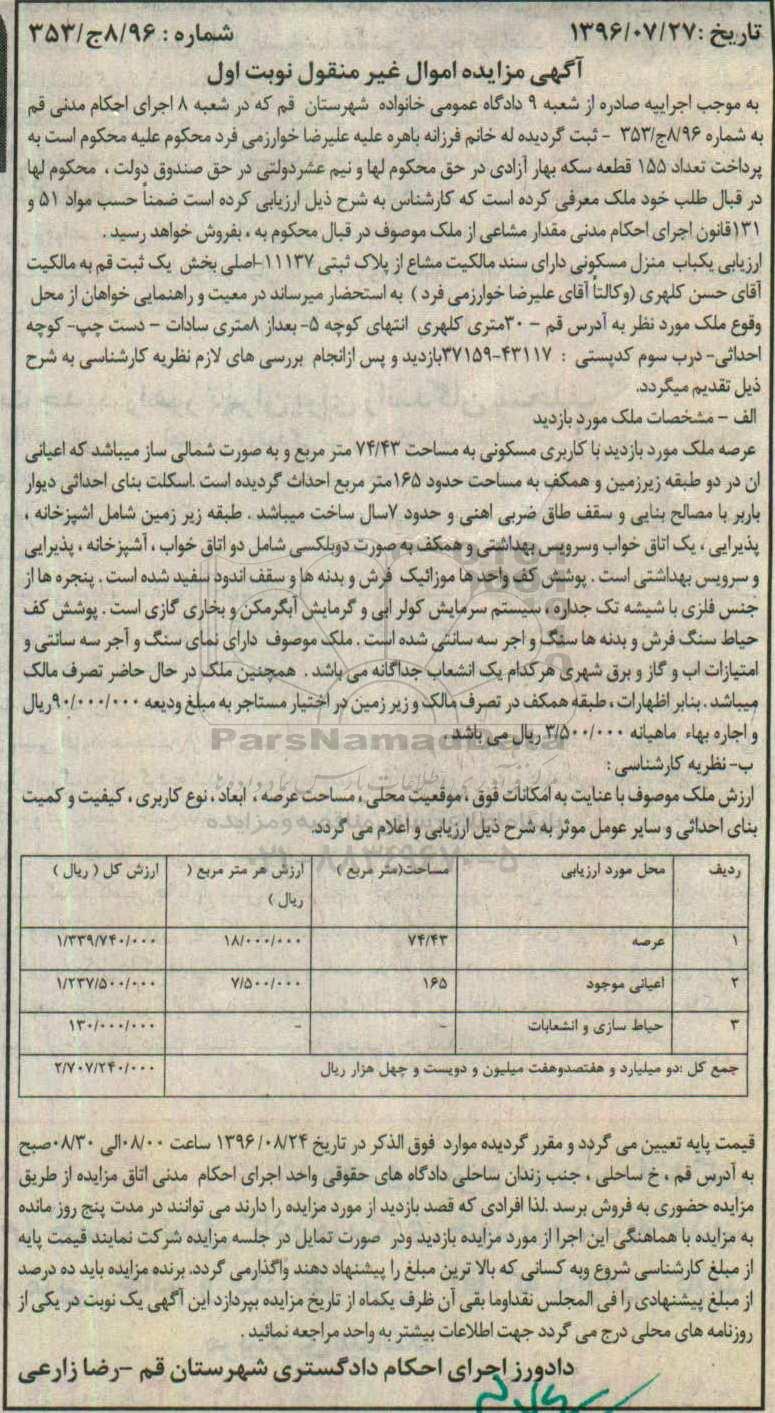 تاریخ :۱۳۹۶/۰۷/۲۷ شماره : ۸/۹۶ج/۳۵۳
آگهی مزایده اموال غیر منقول نوبت اول
به موجب اجراییه صادره از شعبه ۹ دادگاه عمومی خانواده شهرستان قم که در شعبه ۸ اجرای احکام مدنی قم
به شماره ۸/۹۶ج/۳۵۳ - ثبت گردیده له خانم فرزانه باهره علیه علیرضا خوارزمی فرد محکوم علیه محکوم است به
پرداخت تعداد ۱۵۵ قطعه سکه بهار آزادی در حق محکوم لها و نیم عشردولتی در حق صندوق دولت ، محکوم لها
در قبال طلب خود ملک معرفی کرده است که کارشناس به شرح ذیل ارزیابی کرده است ضمناً حسب مواد ۵۱ و
۱۳۱قانون اجرای احکام مدنی مقدار مشاعی از ملک موصوف در قبال محکوم به ، بفروش خواهد رسید .
ارزیابی یکباب منزل مسکونی دارای سند مالکیت مشاع از پلاک ثبتی ۱۱۱۳۷-اصلی بخش یک ثبت قم به مالکیت
آقای حسن کلهری (وکالتاً آقای علیرضا خوارزمی فرد ) به استحضار میرساند در معیت و راهنمایی خواهان از محل
وقوع ملک مورد نظر به آدرس قم – ۳۰متری کلهری انتهای کوچه ۵- بعداز ۸متری سادات – دست چپ- کوچه
احداثی- درب سوم کدپستی : ۴۳۱۱۷-۳۷۱۵۹بازدید و پس ازانجام بررسی های لازم نظریه کارشناسی به شرح
ذیل تقدیم میگردد.
الف – مشخصات ملک مورد بازدید
عرصه ملک مورد بازدید با کاربری مسکونی به مساحت ۷۴/۴۳ متر مربع و به صورت شمالی ساز میباشد که اعیانی
ان در دو طبقه زیرزمین و همکف به مساحت حدود ۱۶۵متر مربع احداث گردیده است .اسکلت بنای احداثی دیوار
باربر با مصالح بنایی و سقف طاق ضربی اهنی و حدود ۷سال ساخت میباشد . طبقه زیر زمین شامل اشپزخانه ،
پذیرایی ، یک اتاق خواب وسرویس بهداشتی و همکف به صورت دوبلکسی شامل دو اتاق خواب ، آشپزخانه ، پذیرایی
و سرویس بهداشتی است . پوشش کف واحد ها موزائیک فرش و بدنه ها و سقف اندود سفید شده است . پنجره ها از
جنس فلزی با شیشه تک جداره ، سیستم سرمایش کولر ابی و گرمایش آبگرمکن و بخاری گازی است . پوشش کف
حیاط سنگ فرش و بدنه ها سنگ و اجر سه سانتی شده است . ملک موصوف دارای نمای سنگ و آجر سه سانتی و
امتیازات اب و گاز و برق شهری هرکدام یک انشعاب جداگانه می باشد . همچنین ملک در حال حاضر تصرف مالک
میباشد . بنابر اظهارات ، طبقه همکف در تصرف مالک و زیر زمین در اختیار مستاجر به مبلغ ودیعه ۹۰/۰۰۰/۰۰۰ریال
و اجاره بهاء ماهیانه ۳/۵۰۰/۰۰۰ ریال می باشد .
ParsNamadData
ب- نظریه کارشناسی :
ارزش ملک موصوف با عنایت به امکانات فوق ، موقعیت محلی ، مساحت عرصه ، ابعاد ، نوع کاربری ، کیفیت و کمیت
بنای احداثی و سایر عوامل موثر به شرح ذیل ارزیابی و اعلام می گردد.
ردیف محل مورد ارزیابی مساحت(متر مربع ) ارزش هر متر مربع ( ارزش کل ( ریال )
ریال )
۱ عرصه ۷۴/۴۳ ۱۸/۰۰۰/۰۰۰ ۱/۳۳۹/۷۴۰/۰۰۰
۲ اعیانی موجود ۱۶۵ ۷/۵۰۰/۰۰۰ ۱/۲۳۷/۵۰۰/۰۰۰
۳ حیاط سازی و انشعابات - - ۱۳۰/۰۰۰/۰۰۰
جمع کل :دو میلیارد و هفتصدوهفت میلیون و دویست و چهل هزار ریال ۲/۷۰۷/۲۴۰/۰۰۰
قیمت پایه تعیین می گردد و مقرر گردیده موارد فوق الذکر در تاریخ ۱۳۹۶/۰۸/۲۴ ساعت ۰۸/۰۰الی ۰۸/۳۰صبح
به آدرس قم ، خ ساحلی ، جنب زندان ساحلی دادگاه های حقوقی واحد اجرای احکام مدنی اتاق مزایده از طریق
مزایده حضوری به فروش برسد .لذا افرادی که قصد بازدید از مورد مزایده را دارند می توانند در مدت پنج روز مانده
به مزایده با هماهنگی این اجرا از مورد مزایده بازدید ودر صورت تمایل در جلسه مزایده شرکت نمایند قیمت پایه
از مبلغ کارشناسی شروع وبه کسانی که بالا ترین مبلغ را پیشنهاد دهند واگذارمی گردد. برنده مزایده باید ده درصد
از مبلغ پیشنهادی را فی المجلس نقداوما بقی آن ظرف یکماه از تاریخ مزایده بپردازد این آگهی یک نوبت در یکی از
روزنامه های محلی درج می گردد جهت اطلاعات بیشتر به واحد مراجعه نمائید .
دادورز اجرای احکام دادگستری شهرستان قم –رضا زارعی